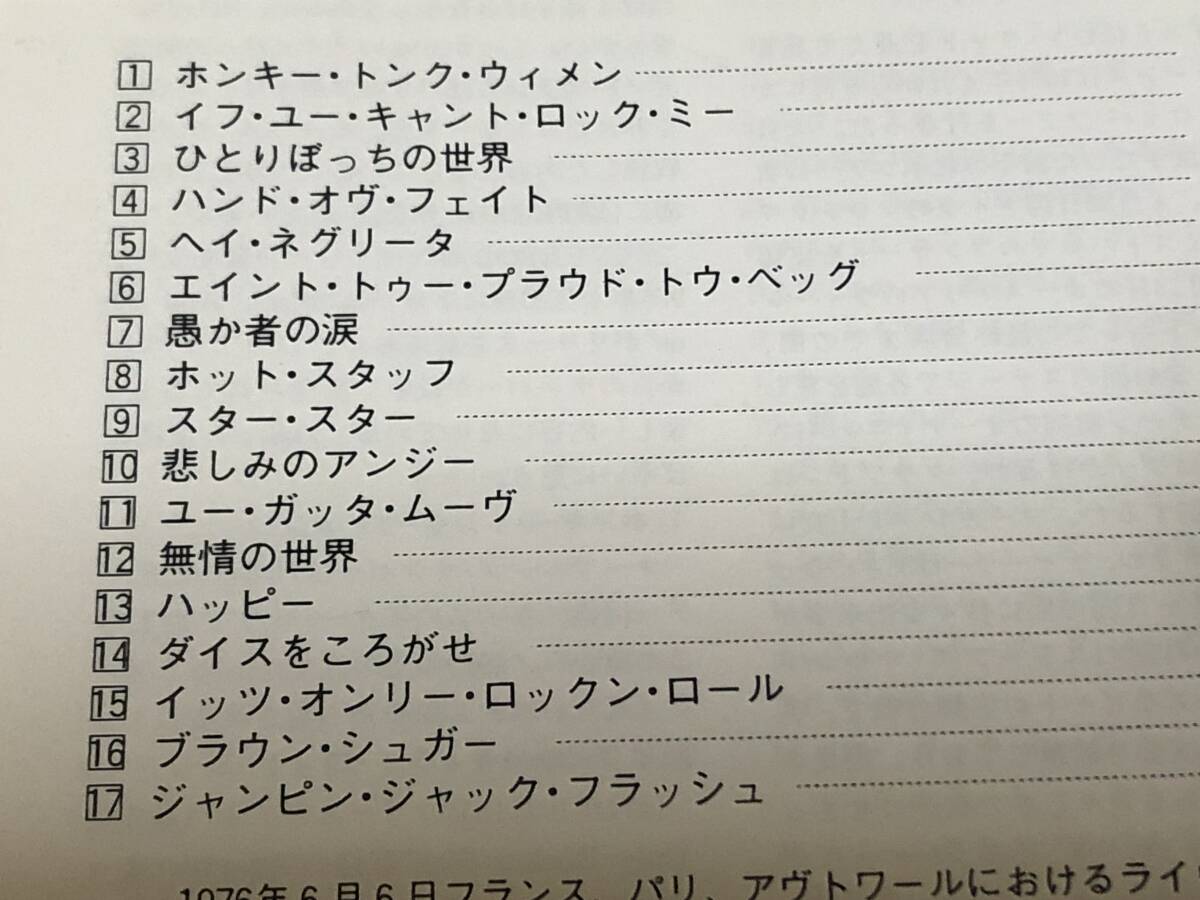 1 ホンキー・トンク・ウィメン
2 イフ・ユー・キャント・ロック・ミー
3 ひとりぼっちの世界
4 ハンド・オヴ・フェイト
5 ヘイ・ネグリータ
6 エイント・トゥー・プラウド・トウ・ベッグ
7 愚か者の涙
8 ホット・スタッフ
9 スター・スター
10 悲しみのアンジー
11 ユー・ガッタ・ムーヴ
12 無情の世界
13 ハッピー
14 ダイスをころがせ
15 イッツ・オンリー・ロックン・ロール
16 ブラウン・シュガー
17 ジャンピン・ジャック・フラッシュ
1976年6月6日フランス、パリ、アヴトワールにおけるライ